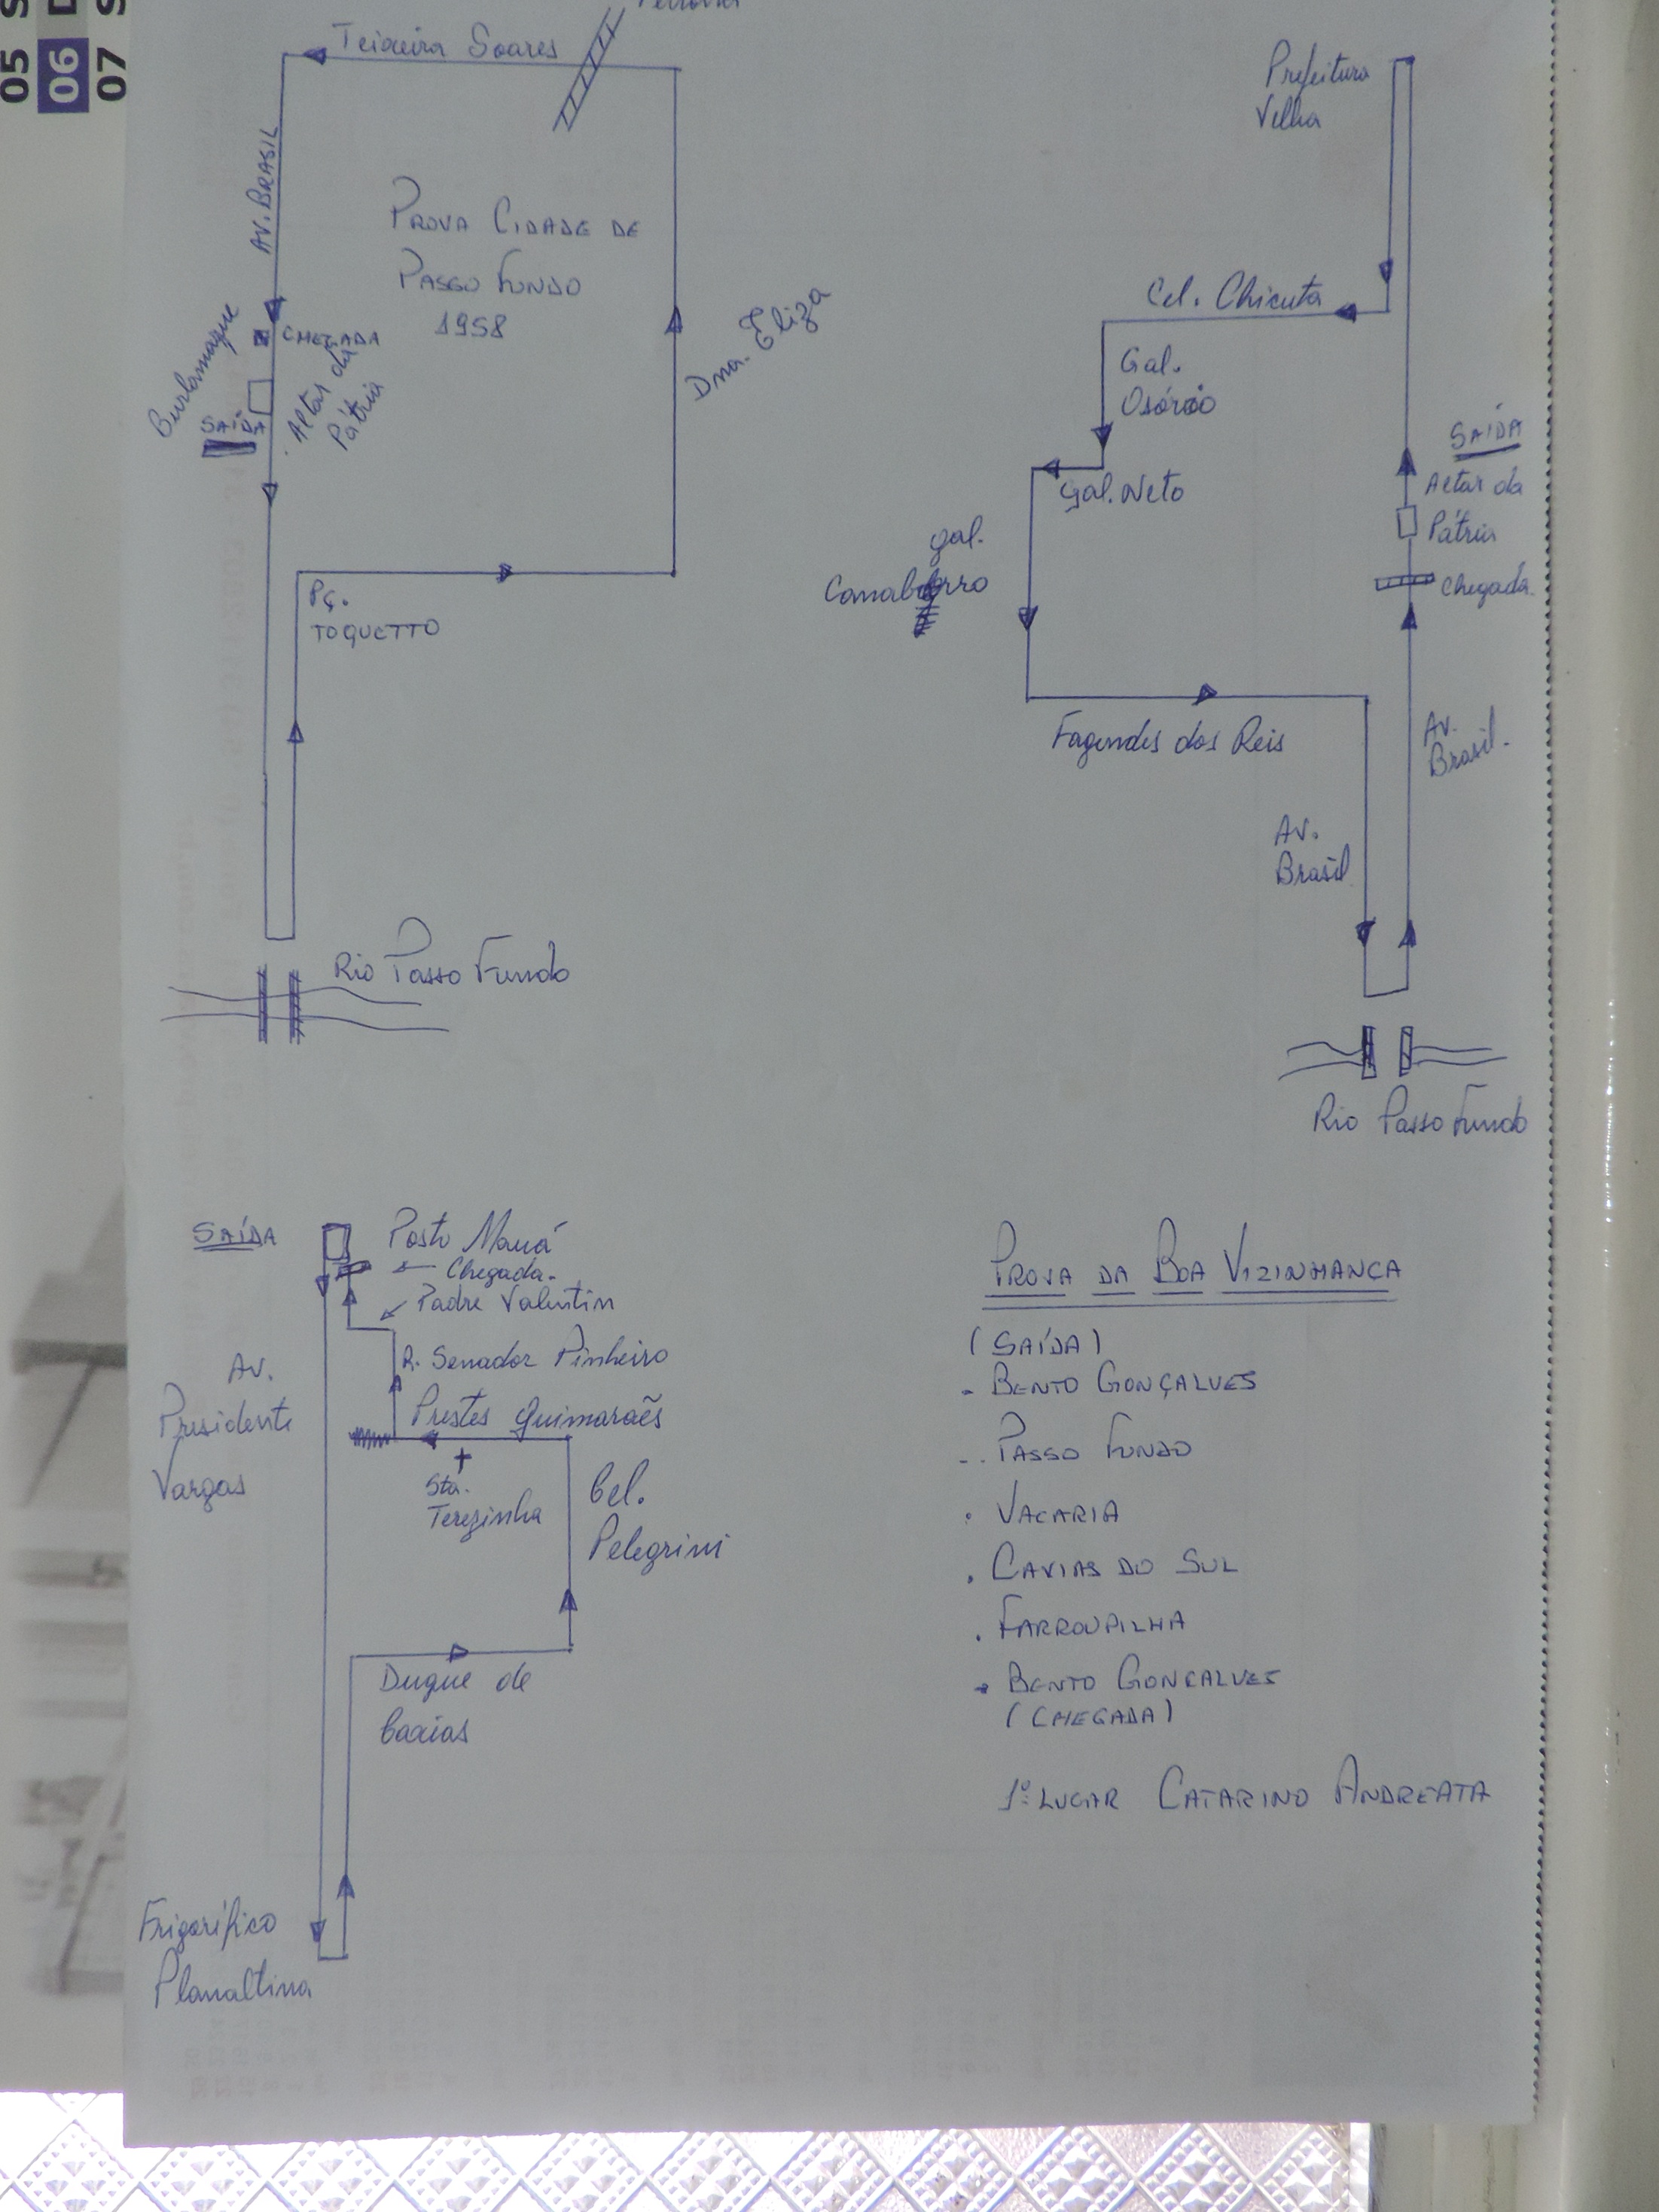 05 S
06
07 S
Teixeira Soares
AV. BRASIL
PROVA CIDADE DE
PASSO FUNDO
1958
CHEGADA
Burlamaque
SAÍDA
Altar da
Pátria
Dna. Eliza
Pç.
TOQUETTO
Rio Passo Fundo
Prefeitura
Velha
Cel. Chicuta
Gal.
Osório
Gal. Neto
SAÍDA
Altar da
Pátria
Chegada.
gal.
Canabarro
Fagundes dos Reis
Av.
Brasil.
Av.
Brasil
Rio Passo Fundo
SAÍDA
Posto Mauá
Chegada.
Padre Valentin
R. Senador Pinheiro
Prestes Guimarães
Av.
Presidente
Vargas
Sta.
Terezinha
Cel.
Pelegrini
Duque de
Caxias
Frigorífico
Planaltina
PROVA DA BOA VIZINHANCA
(SAÍDA)
- BENTO GONÇALVES
- PASSO FUNDO
. VACARIA
. CAXIAS DO SUL
. FARROUPILHA
. BENTO GONCALVES
(CHEGADA)
1º LUGAR CATARINO ANDREATA